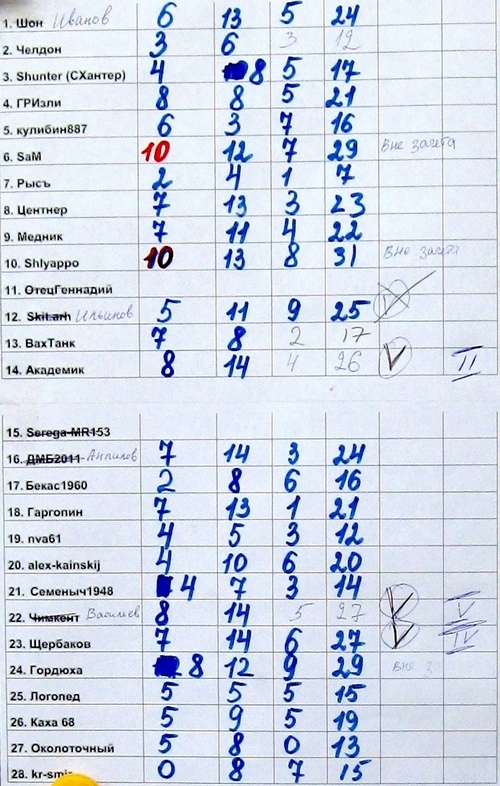 1. Шон Иванов 6 13 5 24
2. Челдон 3 6 3 12
3. Shunter (СХантер) 4 8 5 17
4. ГРИзли 8 8 5 21
5. кулибин887 6 3 7 16
6. SaM 10 12 7 29 Вне зачета
7. Рысъ 2 4 1 7
8. Центнер 7 13 3 23
9. Медник 7 11 4 22
10. Shlyappo 10 13 8 31 Вне зачета
11. ОтецГеннадий
12. Skif.arh 5 11 9 25
13. ВахТанк 7 8 2 17
14. Академик 8 14 4 26 V II
15. Serega-MR153
16. ДМБ2011 7 14 3 24
17. Бекас1960 2 8 6 16
18. Гаргопин 7 13 1 21
19. nva61 4 5 3 12
20. alex-kainskij 4 10 6 20
21. Семеныч1948 4 7 3 14
22. Чимкент Васильев 8 14 5 27 V V
23. Щербаков 7 14 6 27 V IV
24. Гордюха 8 12 9 29 Вне
25. Логопед 5 5 5 15
26. Каха 68 5 9 5 19
27. Околоточный 5 8 0 13
28. 0 8 7 15